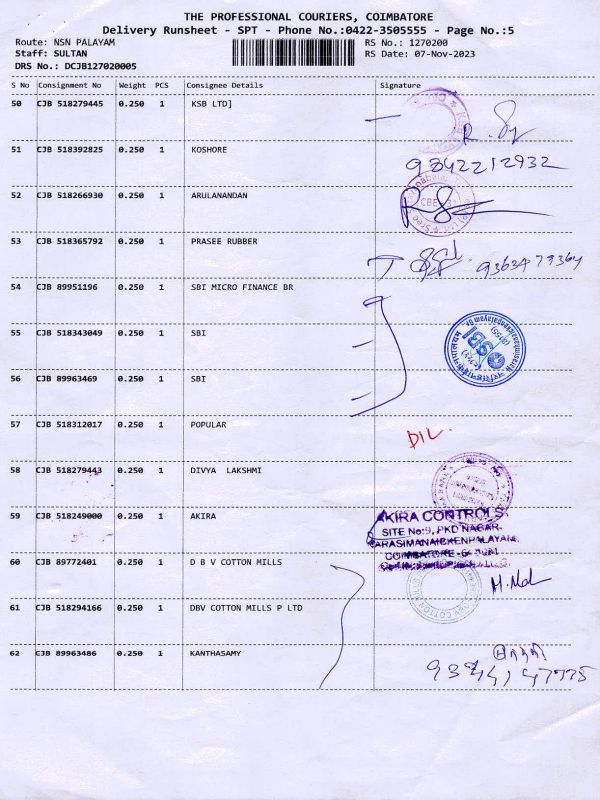 THE PROFESSIONAL COURIERS, COIMBATORE
Delivery Runsheet - SPT - Phone No.:0422-3505555 - Page No.:5
Route: NSN PALAYAM RS No.: 1270200
Staff: SULTAN RS Date: 07-Nov-2023
DRS No.: DCJB127020005
S No Consignment No Weight PCS Consignee Details Signature
50 CJB 518279445 0.250 1 KSB LTD]
51 CJB 518392825 0.250 1 KOSHORE 9842212932
52 CJB 518266930 0.250 1 ARULANANDAN
53 CJB 518365792 0.250 1 PRASEE RUBBER 9363479364
54 CJB 89951196 0.250 1 SBI MICRO FINANCE BR
55 CJB 518343049 0.250 1 SBI
SBI
56 CJB 89963469 0.250 1 SBI
57 CJB 518312017 0.250 1 POPULAR DIL.
58 CJB 518279443 0.250 1 DIVYA LAKSHMI
59 CJB 518249000 0.250 1 AKIRA AKIRA CONTROLS
SITE No:9, PKD NAGAR,
NARASIMANAICKENPALAYAM,
60 CJB 89772401 0.250 1 D B V COTTON MILLS
61 CJB 518294166 0.250 1 DBV COTTON MILLS P LTD
62 CJB 89963486 0.250 1 KANTHASAMY